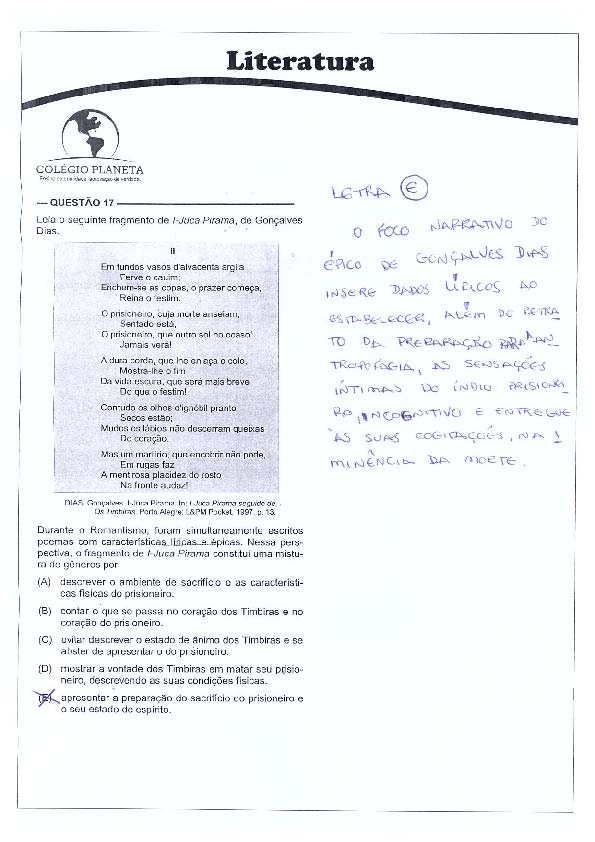 Literatura
COLÉGIO PLANETA
QUESTÃO 17
Leia o seguinte fragmento de I-Juca Pirama, de Gonçalves
Dias.
II
Em fundos vasos d'alvacenta argila
Ferve o cauim;
Enchem-se as copas, o prazer começa,
Reina o festim.
O prisioneiro, cuja morte anseiam,
Sentado está,
O prisioneiro, que outro sol no ocaso
Jamais verá!
A dura corda, que lhe enlaça o colo,
Mostra-lhe o fim
Da vida escura, que será mais breve
Do que o festim!
Contudo os olhos d'ignóbil pranto
Secos estão;
Mudos os lábios não descerram queixas
Do coração.
Mas um martírio, que encobrir não pode,
Em rugas faz
A mentirosa placidez do rosto
Na fronte audaz!
DIAS, Gonçalves. I-Juca Pirama. In: I-Juca Pirama seguido de
Os Timbiras. Porto Alegre: L&PM Pocket, 1997. p. 13.
Durante o Romantismo, foram simultaneamente escritos
poemas com características líricas e épicas. Nessa pers-
pectiva, o fragmento de I-Juca Pirama constitui uma mistu-
ra de gêneros por
(A) descrever o ambiente de sacrifício e as característi-
cas físicas do prisioneiro.
(B) contar o que se passa no coração dos Timbiras e no
coração do prisioneiro.
(C) evitar descrever o estado de ânimo dos Timbiras e se
abster de apresentar o do prisioneiro.
(D) mostrar a vontade dos Timbiras em matar seu prisio-
neiro, descrevendo as suas condições físicas.
(E) apresentar a preparação do sacrifício do prisioneiro e
o seu estado de espírito.
LETRA E
O FOCO NARRATIVO DO
ÉPICO DE GONÇALVES DIAS
INSERE DADOS LÍRICOS AO
ESTABELECER, ALÉM DO RETRA
TO DA PREPARAÇÃO PARA A AN
TROPOFAGIA, AS SENSAÇÕES
ÍNTIMAS DO ÍNDIO PRISIONEI
RO, INCOGNITIVO E ENTREGUE
ÀS SUAS COGITAÇÕES, NA I
MINÊNCIA DA MORTE.